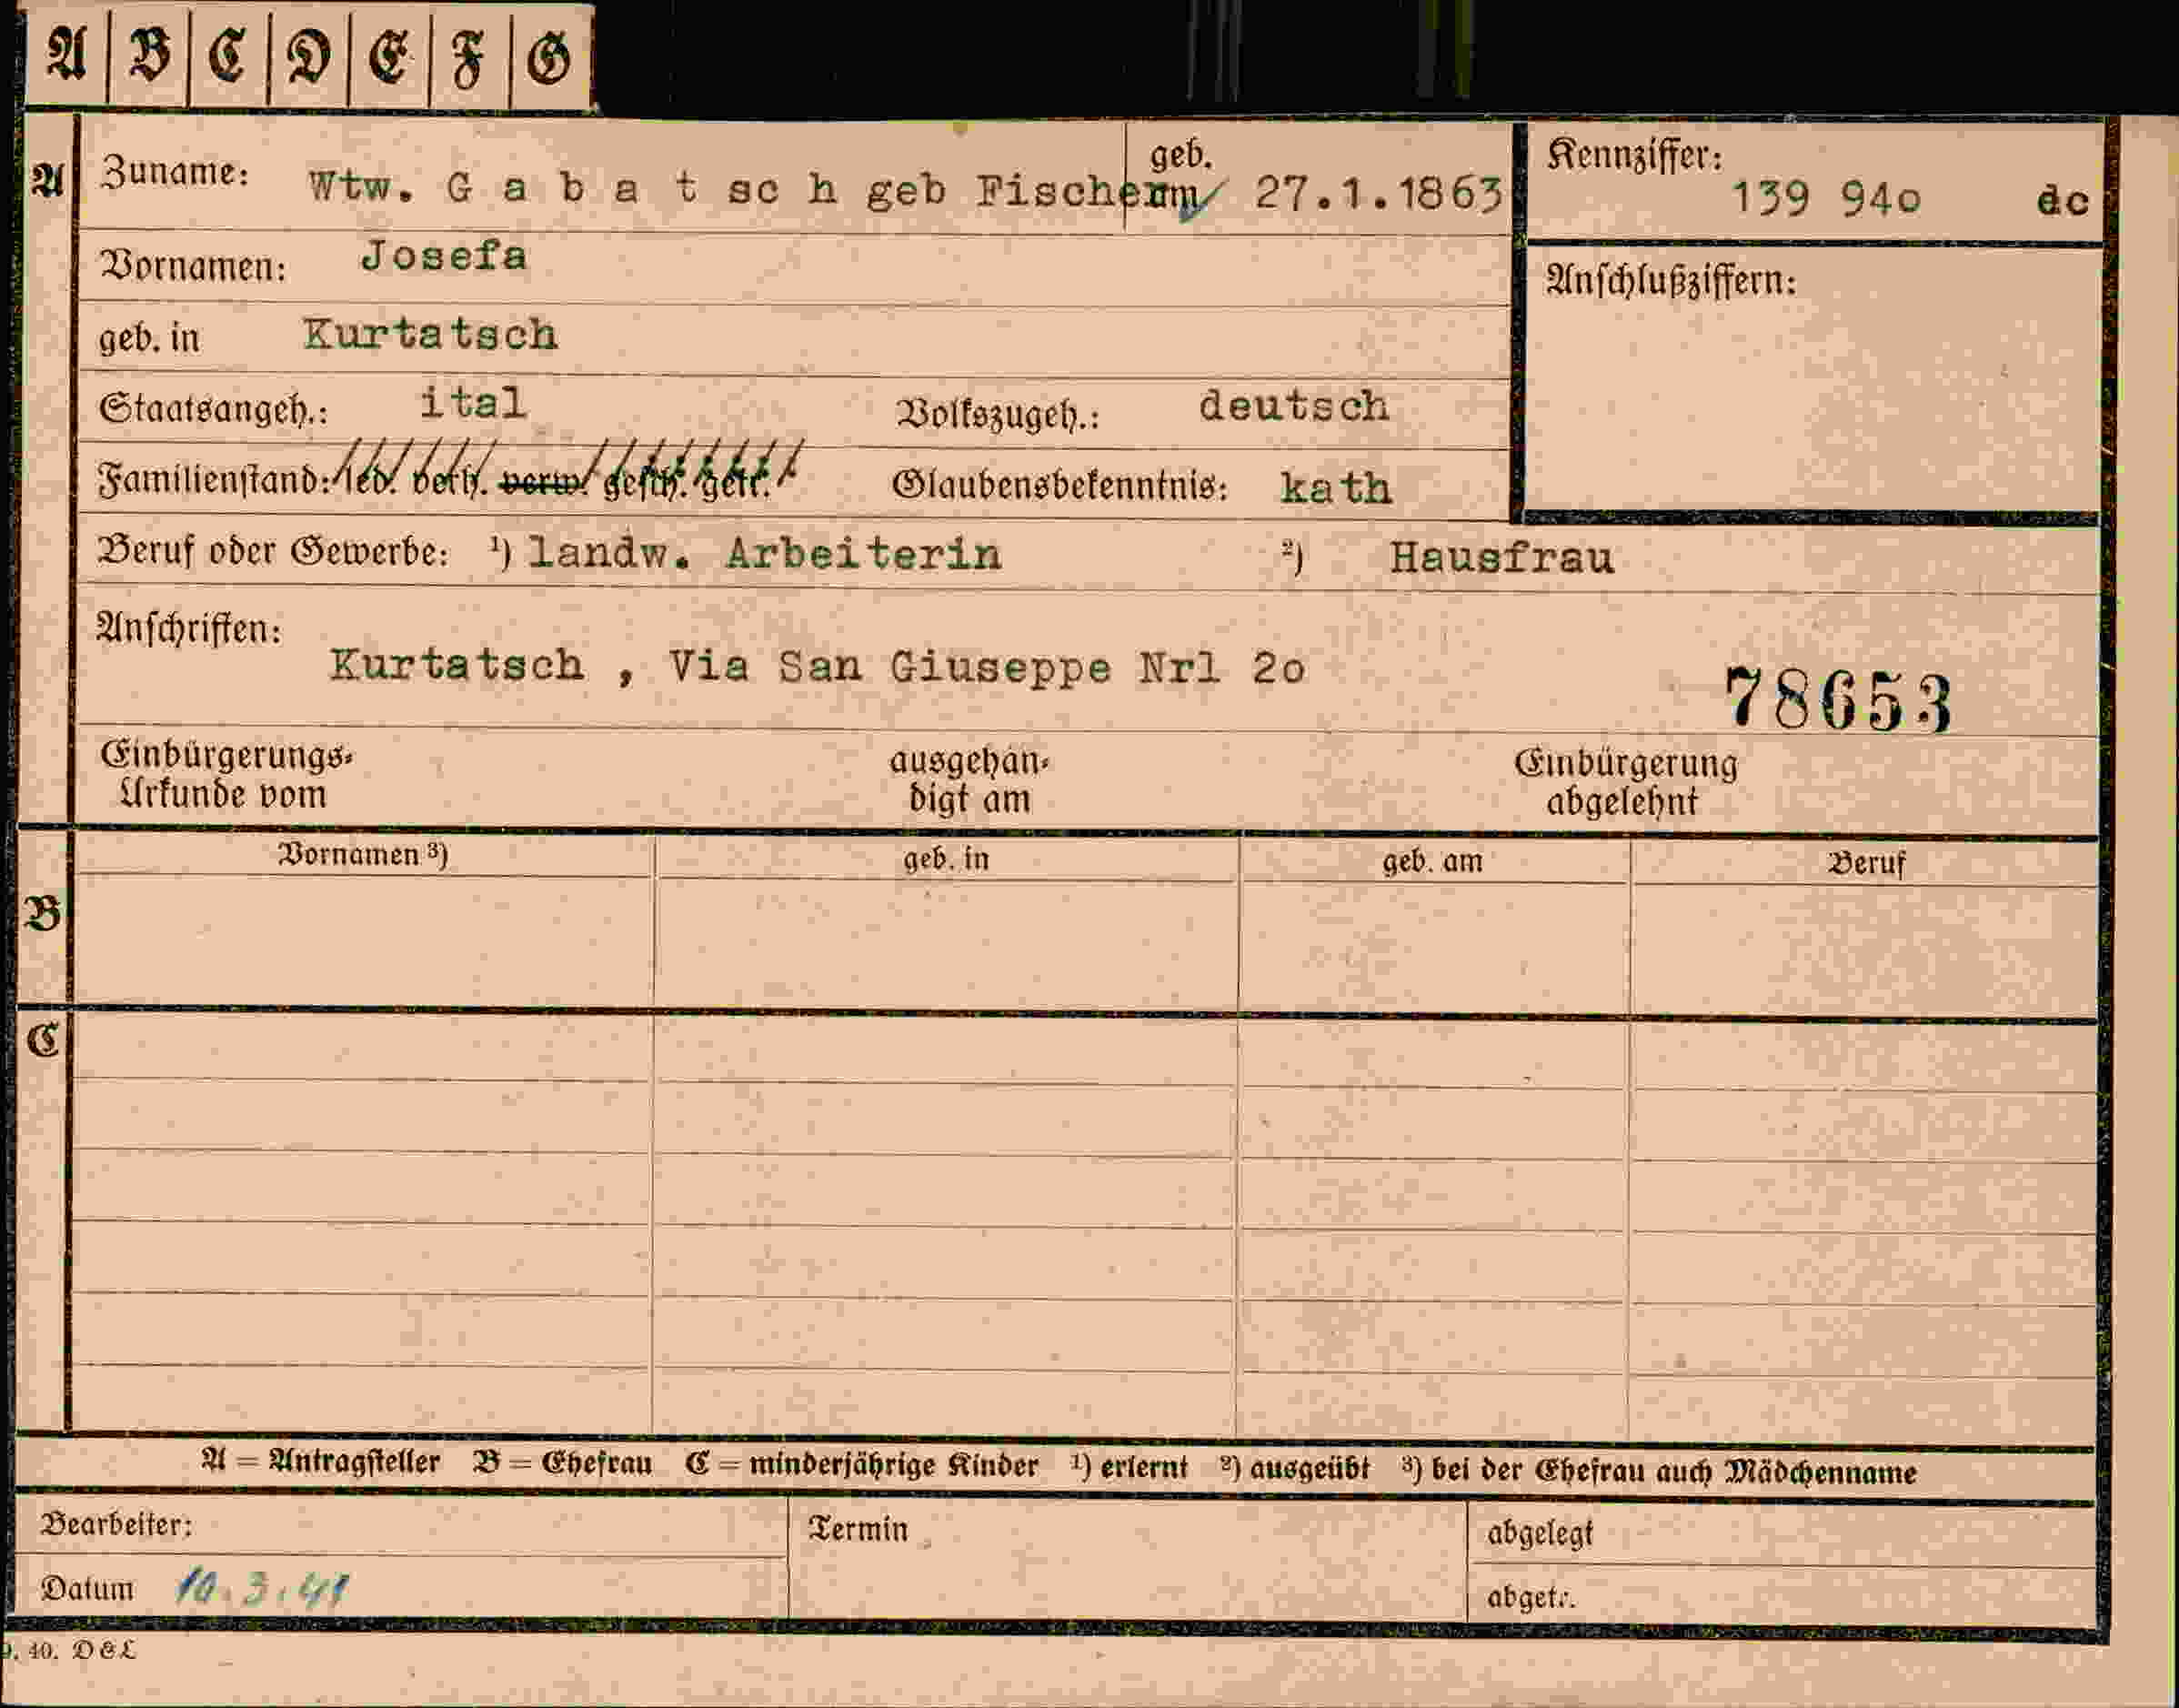 A B C D E F G
A Zuname: Wtw. G a b a t sc h geb Fischer geb. 27.1.1863 Kennziffer: 139 940 dc
Vornamen: Josefa
Anschlußziffern:
geb. in Kurtatsch
Staatsangeh.: ital Volkszugeh.: deutsch
Familienstand: led. verh. verw. gesch. getr. Glaubensbekenntnis: kath
Beruf oder Gewerbe: ¹) landw. Arbeiterin ²) Hausfrau
Anschriften:
Kurtatsch , Via San Giuseppe Nrl 2o
78653
Einbürgerungs-
Urkunde vom
ausgehän-
digt am
Einbürgerung
abgelehnt
Vornamen ³) geb. in geb. am Beruf
B
C
A = Antragsteller B = Ehefrau C = minderjährige Kinder ¹) erlernt ²) ausgeübt ³) bei der Ehefrau auch Mädchenname
Bearbeiter: Termin abgelegt
Datum 10.3.41 abgetr.
40. D&L